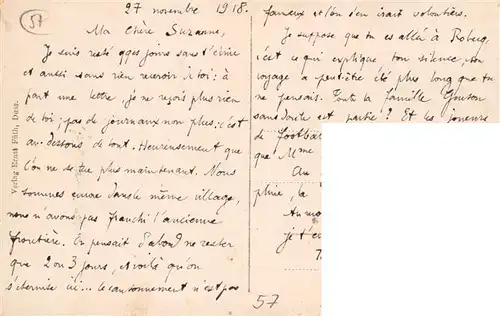 57
27 novembre 1918.
Ma Chère Suzanne,
Je suis resté qques jours sans t'écrire
et aussi sans rien recevoir de toi : à
part une lettre, je ne reçois plus rien
de toi ; pas de journaux non plus. c'est
au-dessous de tout. Heureusement que
l'on ne se tue plus maintenant. Nous
sommes encore dans le même village,
nous n'avons pas franchi l'ancienne
frontière. On pensait d'abord ne rester
que 2 ou 3 jours, et voilà qu'on
s'éternise ici... le cantonnement n'est pas
fameux et l'on s'en irait volontiers.
Je suppose que tu es allée à
c'est ce qui explique ton silence, ton
voyage a peut-être été plus long que tu
ne pensais. Toute la famille
sans doute est partie ? Et les joueurs
de football
que Mme
Au
phie, la
Au mo
je t'e
57
Verlag Ernst Flüh, Deuz.